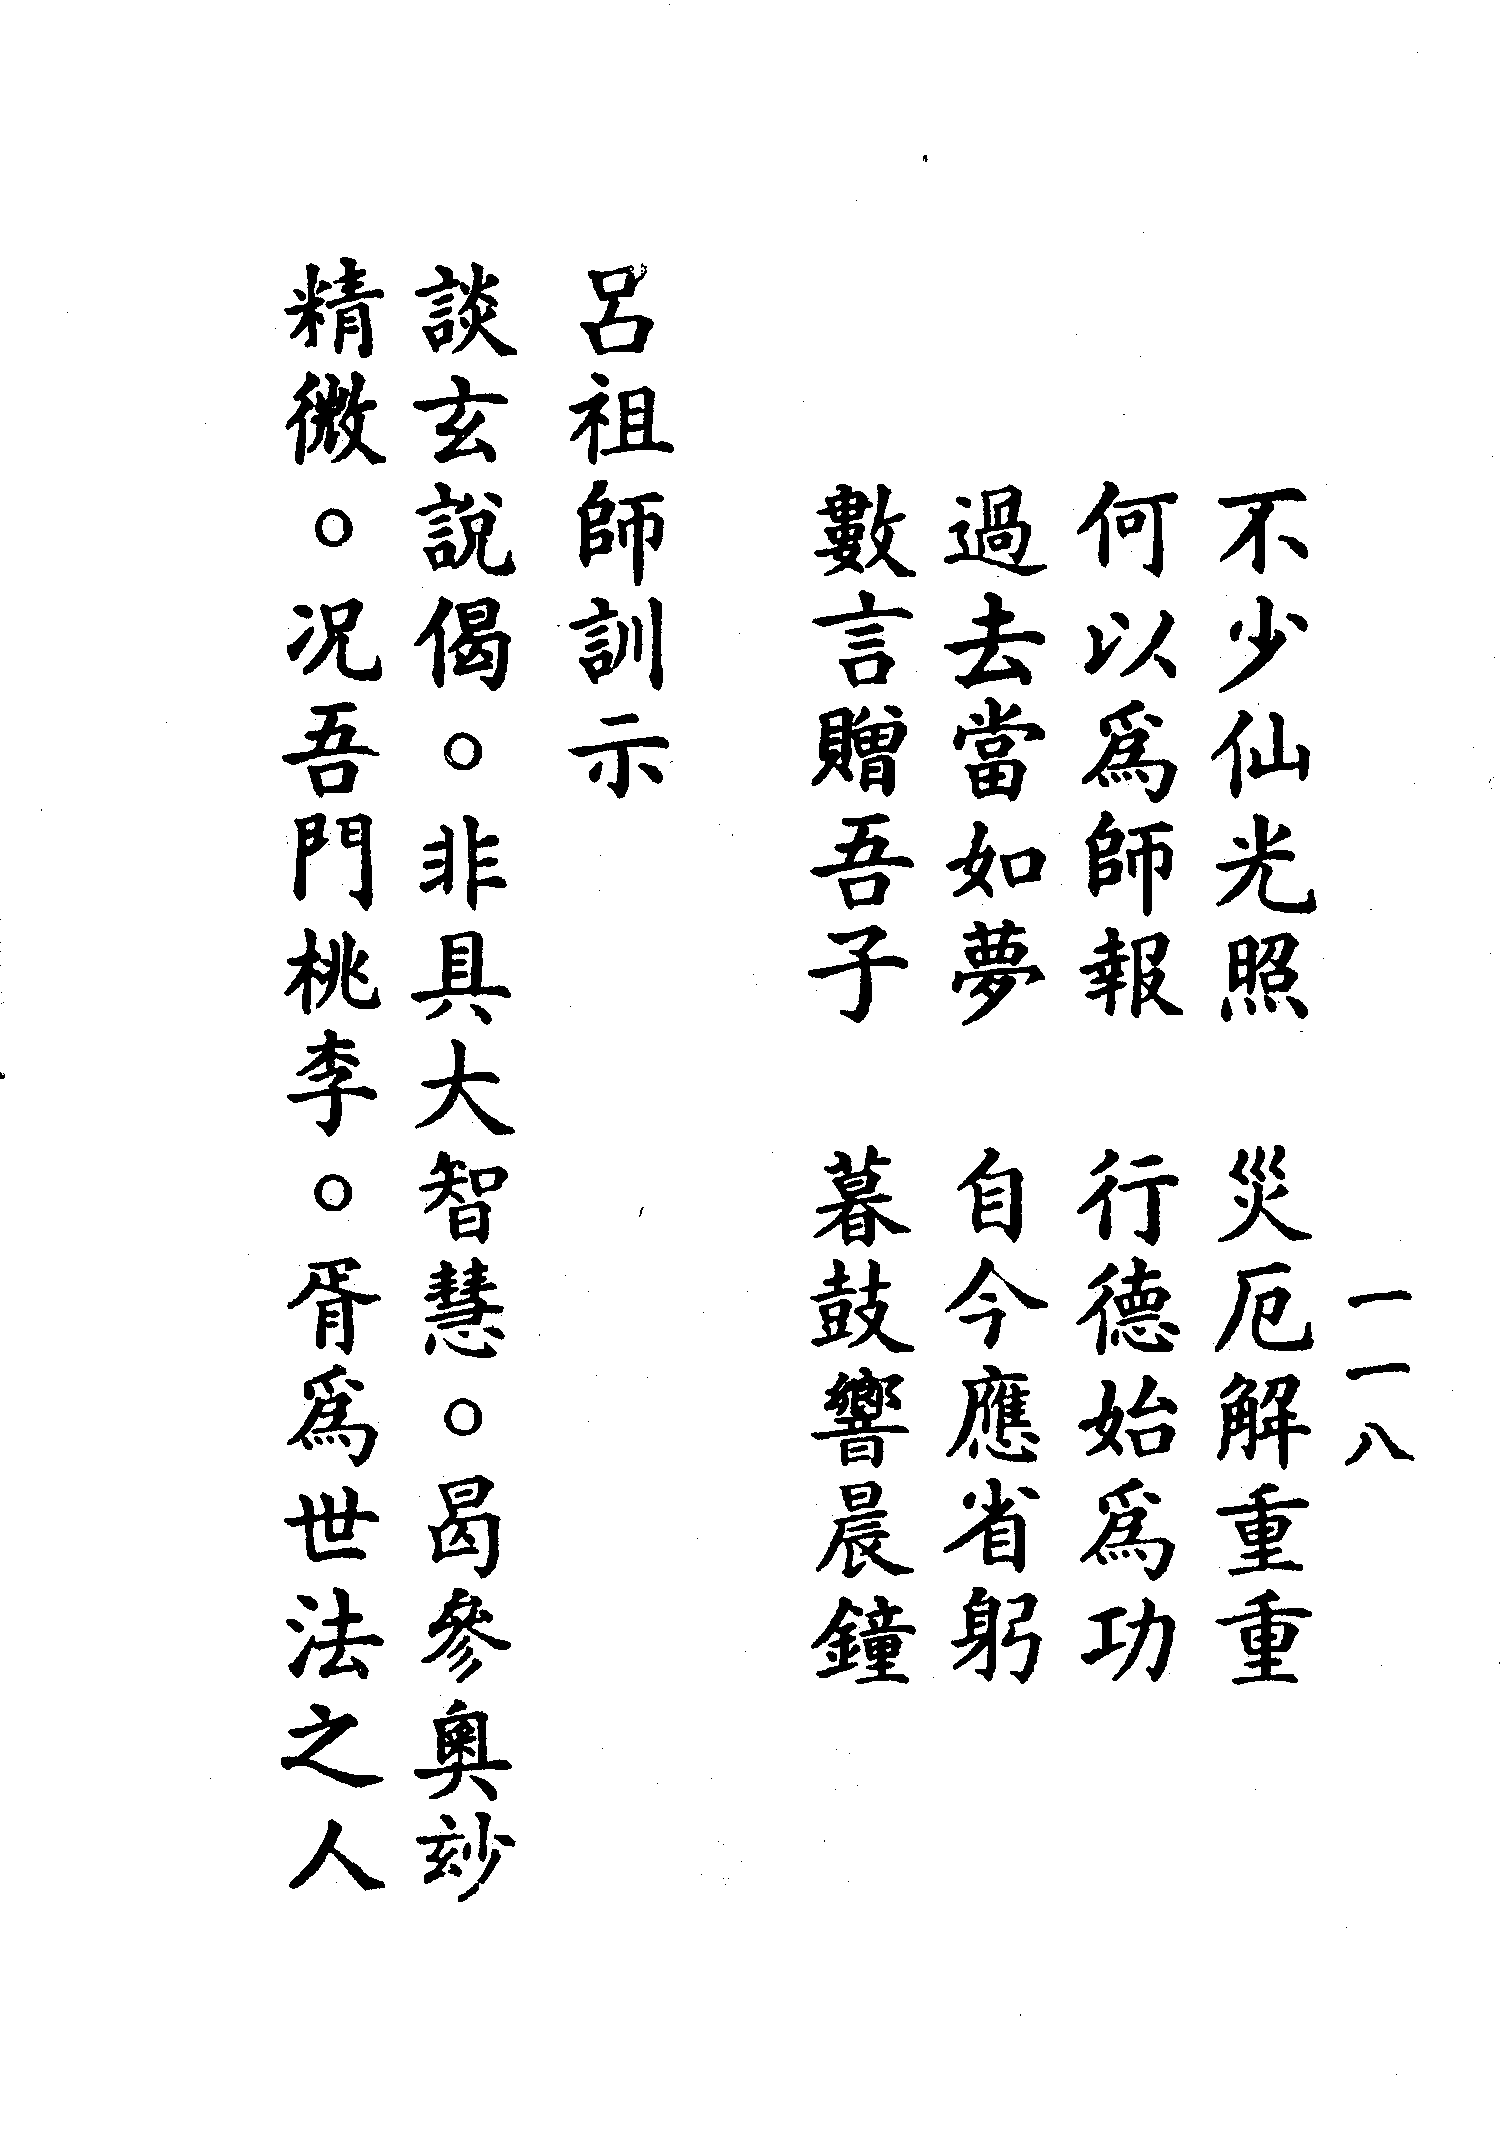 一一八
不少仙光照　災厄解重重
何以爲師報　行德始爲功
過去當如夢　自今應省躬
數言贈吾子　暮鼓響晨鐘
呂祖師訓示
談玄說偈。非具大智慧。曷參奧玅
精微。况吾門桃李。胥爲世法之人